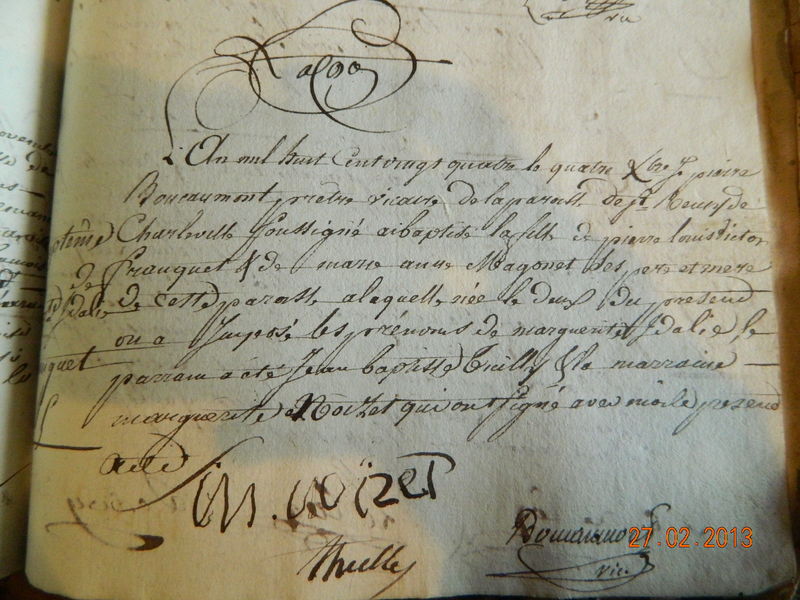 L'An mil huit Cent vingt quatre le quatre Xbre J. pierre
Boucaumont, prêtre vicaire de la paroisse de St. Remy de
Charleville soussigné ai baptisé la fille de pierre louis victor
de franquet & de marie anne Magonet ses pere et mere
de cette paroisse a laquelle née le deux du présend
on a Imposé les prénoms de marguerite Idalie, le
parrain a été Jean baptiste Thilly & la marraine
marguerite Noizet qui ont signé avec moi le présend
acte
m. noizet
Boucaumont
vic.
27.02.2013